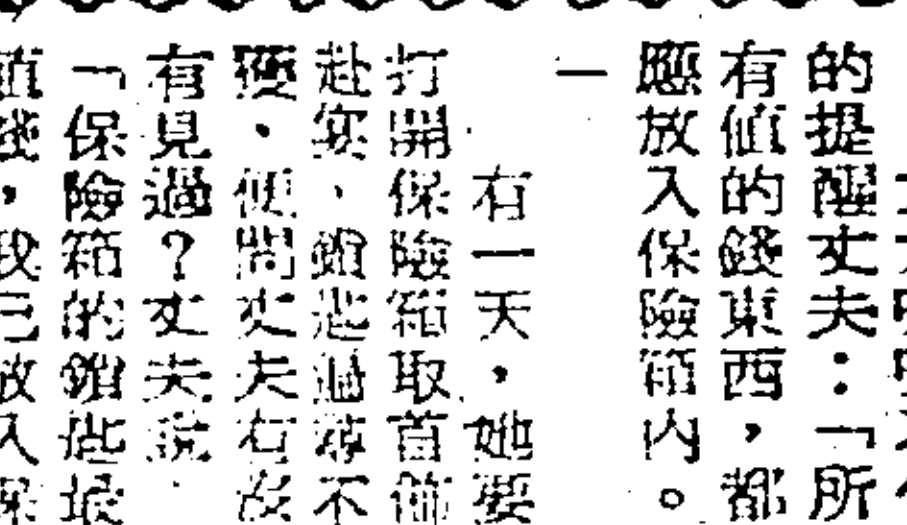 的提醒丈夫：「所
有值的錢東西，都
應放入保險箱內。
」
有一天，她要
打開保險箱取首飾
赴宴、鎖匙遍尋不
獲、便問丈夫有沒
有見過？丈夫說：
「保險箱的鎖匙最
值錢，我已放入保